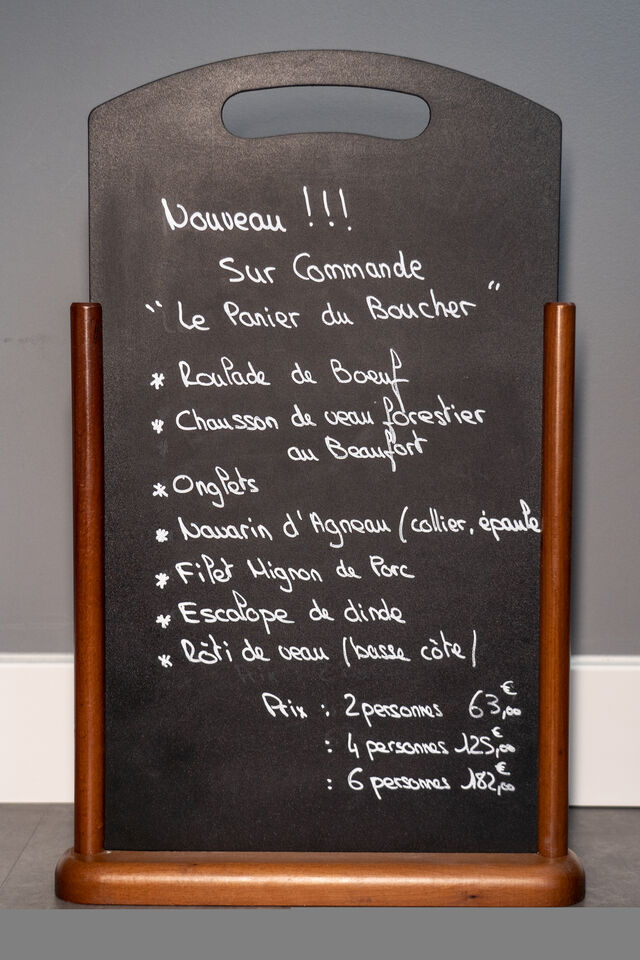 Nouveau !!!
Sur Commande
" Le Panier du Boucher "
* Roulade de Boeuf
* Chausson de veau forestier
au Beaufort
* Onglets
* Navarin d'Agneau (collier, épaule
* Filet Mignon de Porc
* Escalope de dinde
* Rôti de veau (basse côte)
Prix : 2 personnes 63,00€
: 4 personnes 125,00€
: 6 personnes 182,00€